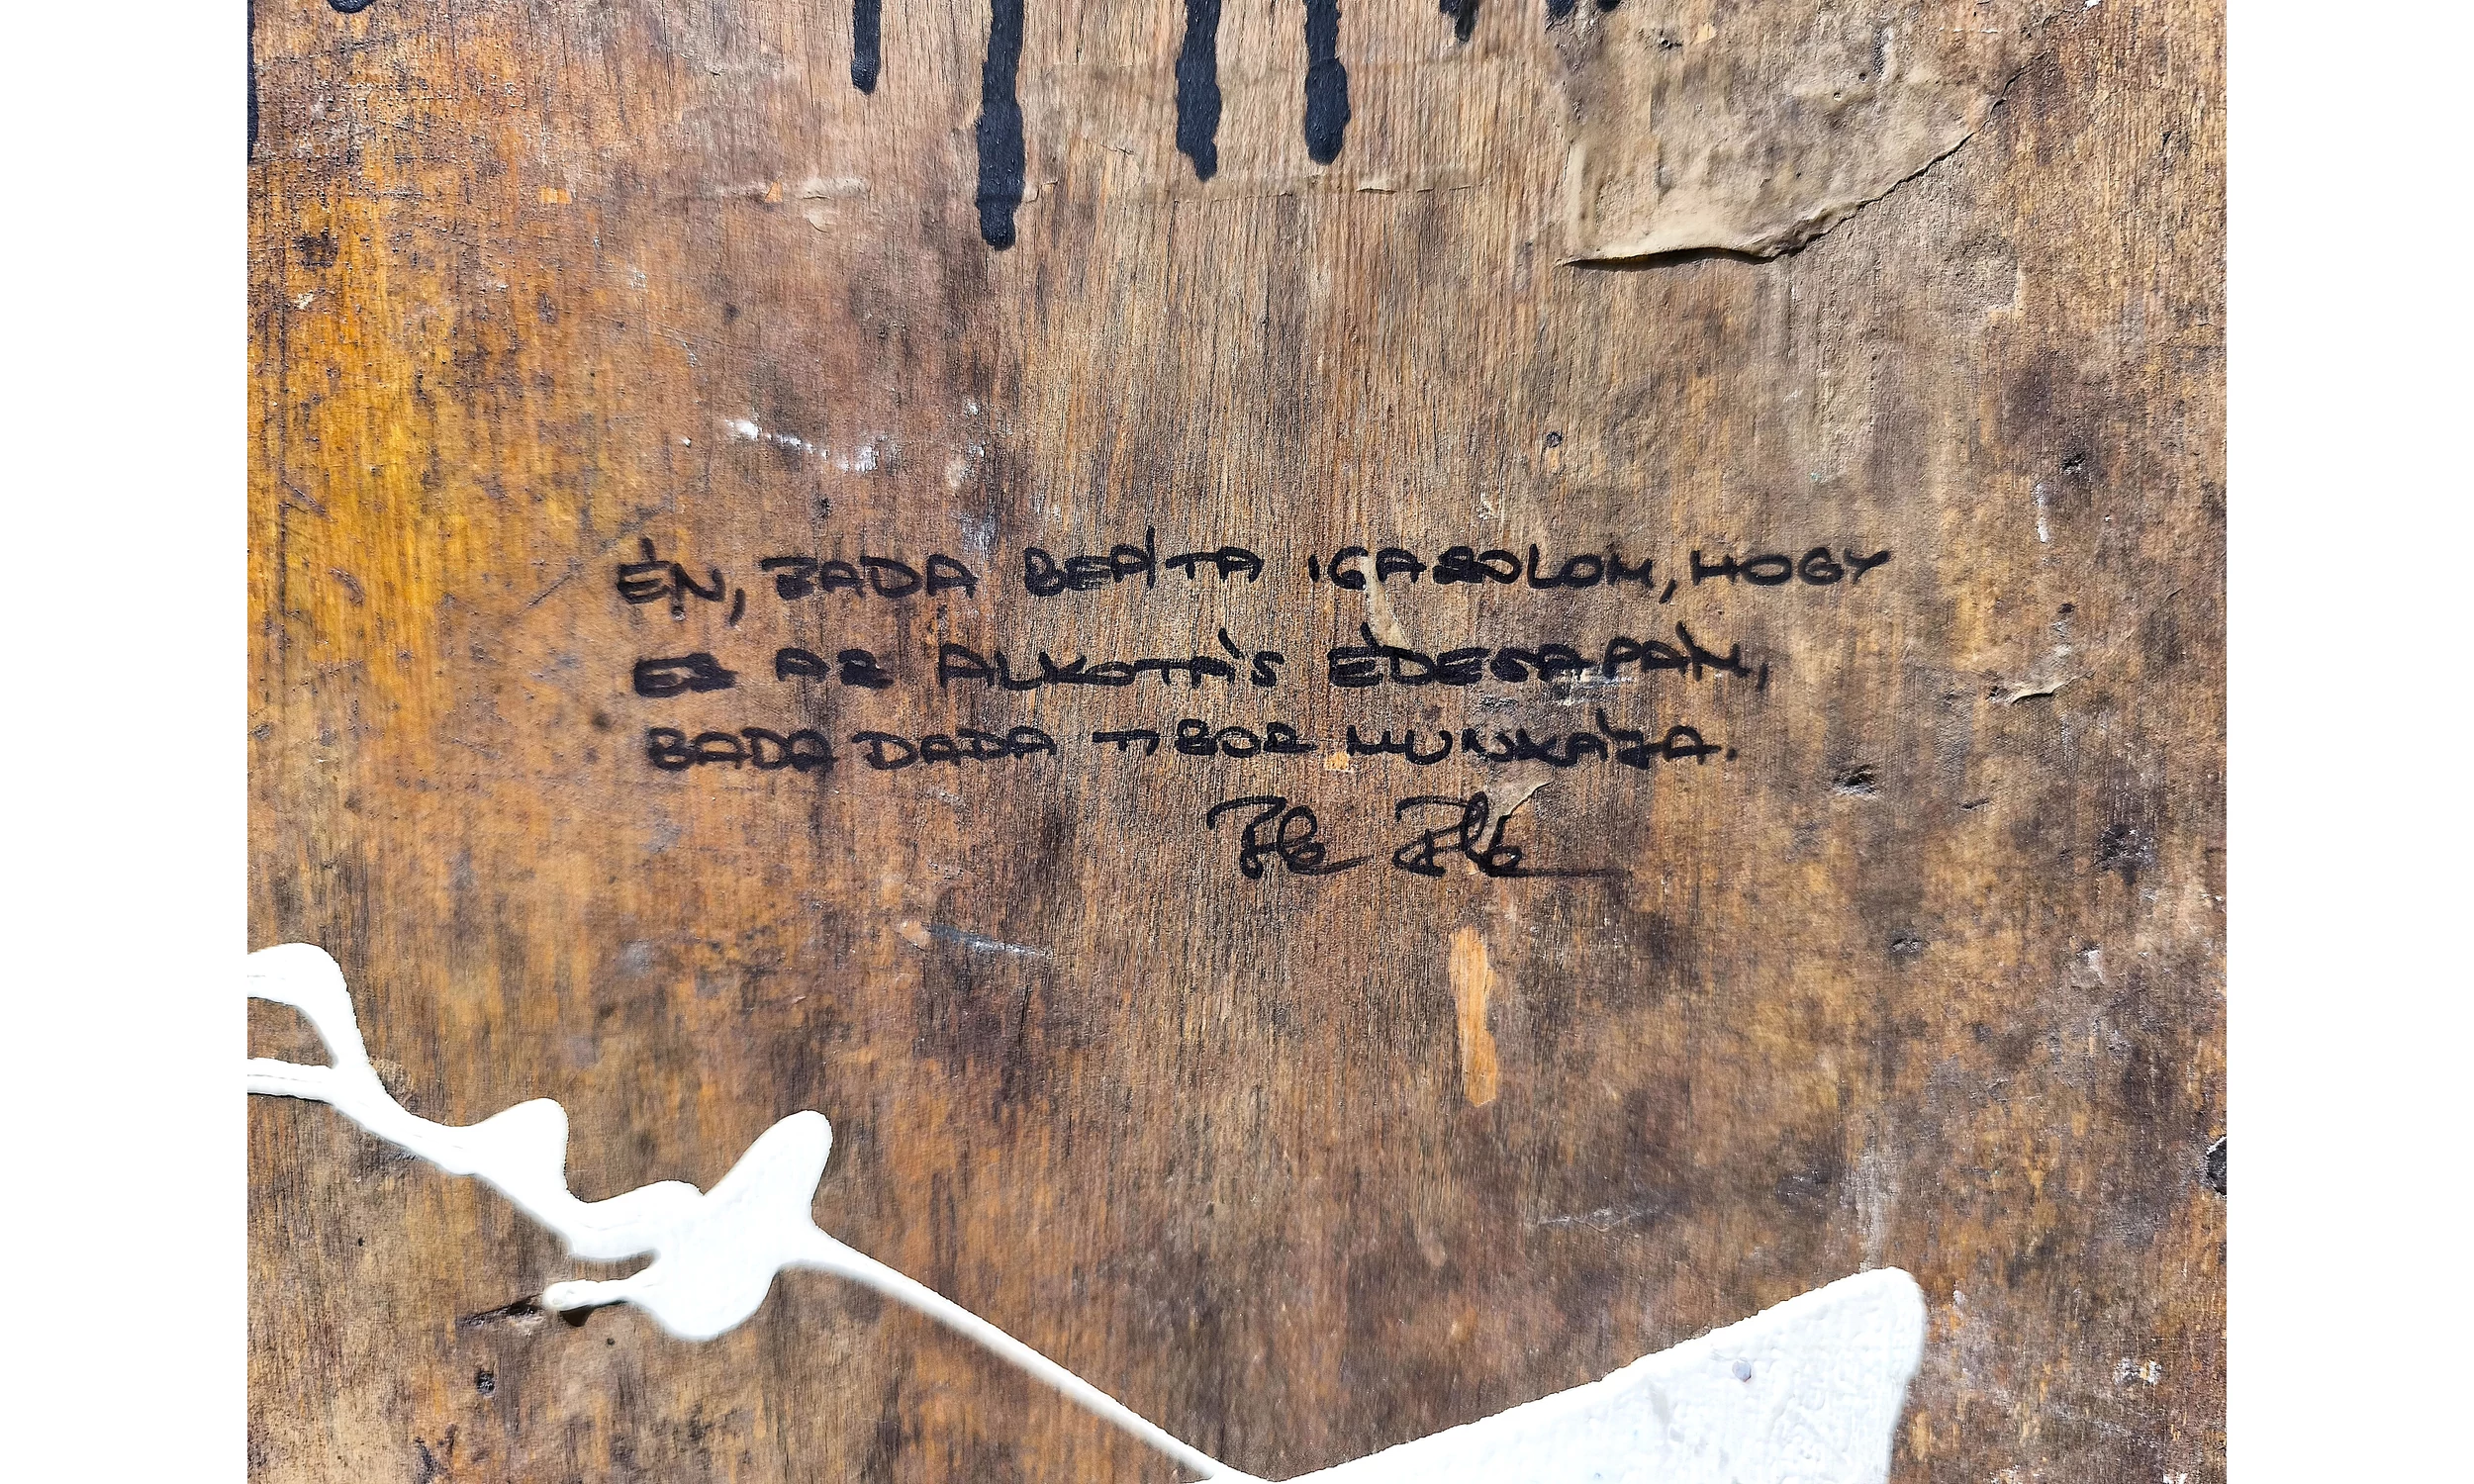 ÉN, BADA BEÁTA IGAZOLOM, HOGY
EZ AZ ALKOTÁS ÉDESAPÁM,
BADA DADA TIBOR MUNKÁJA.